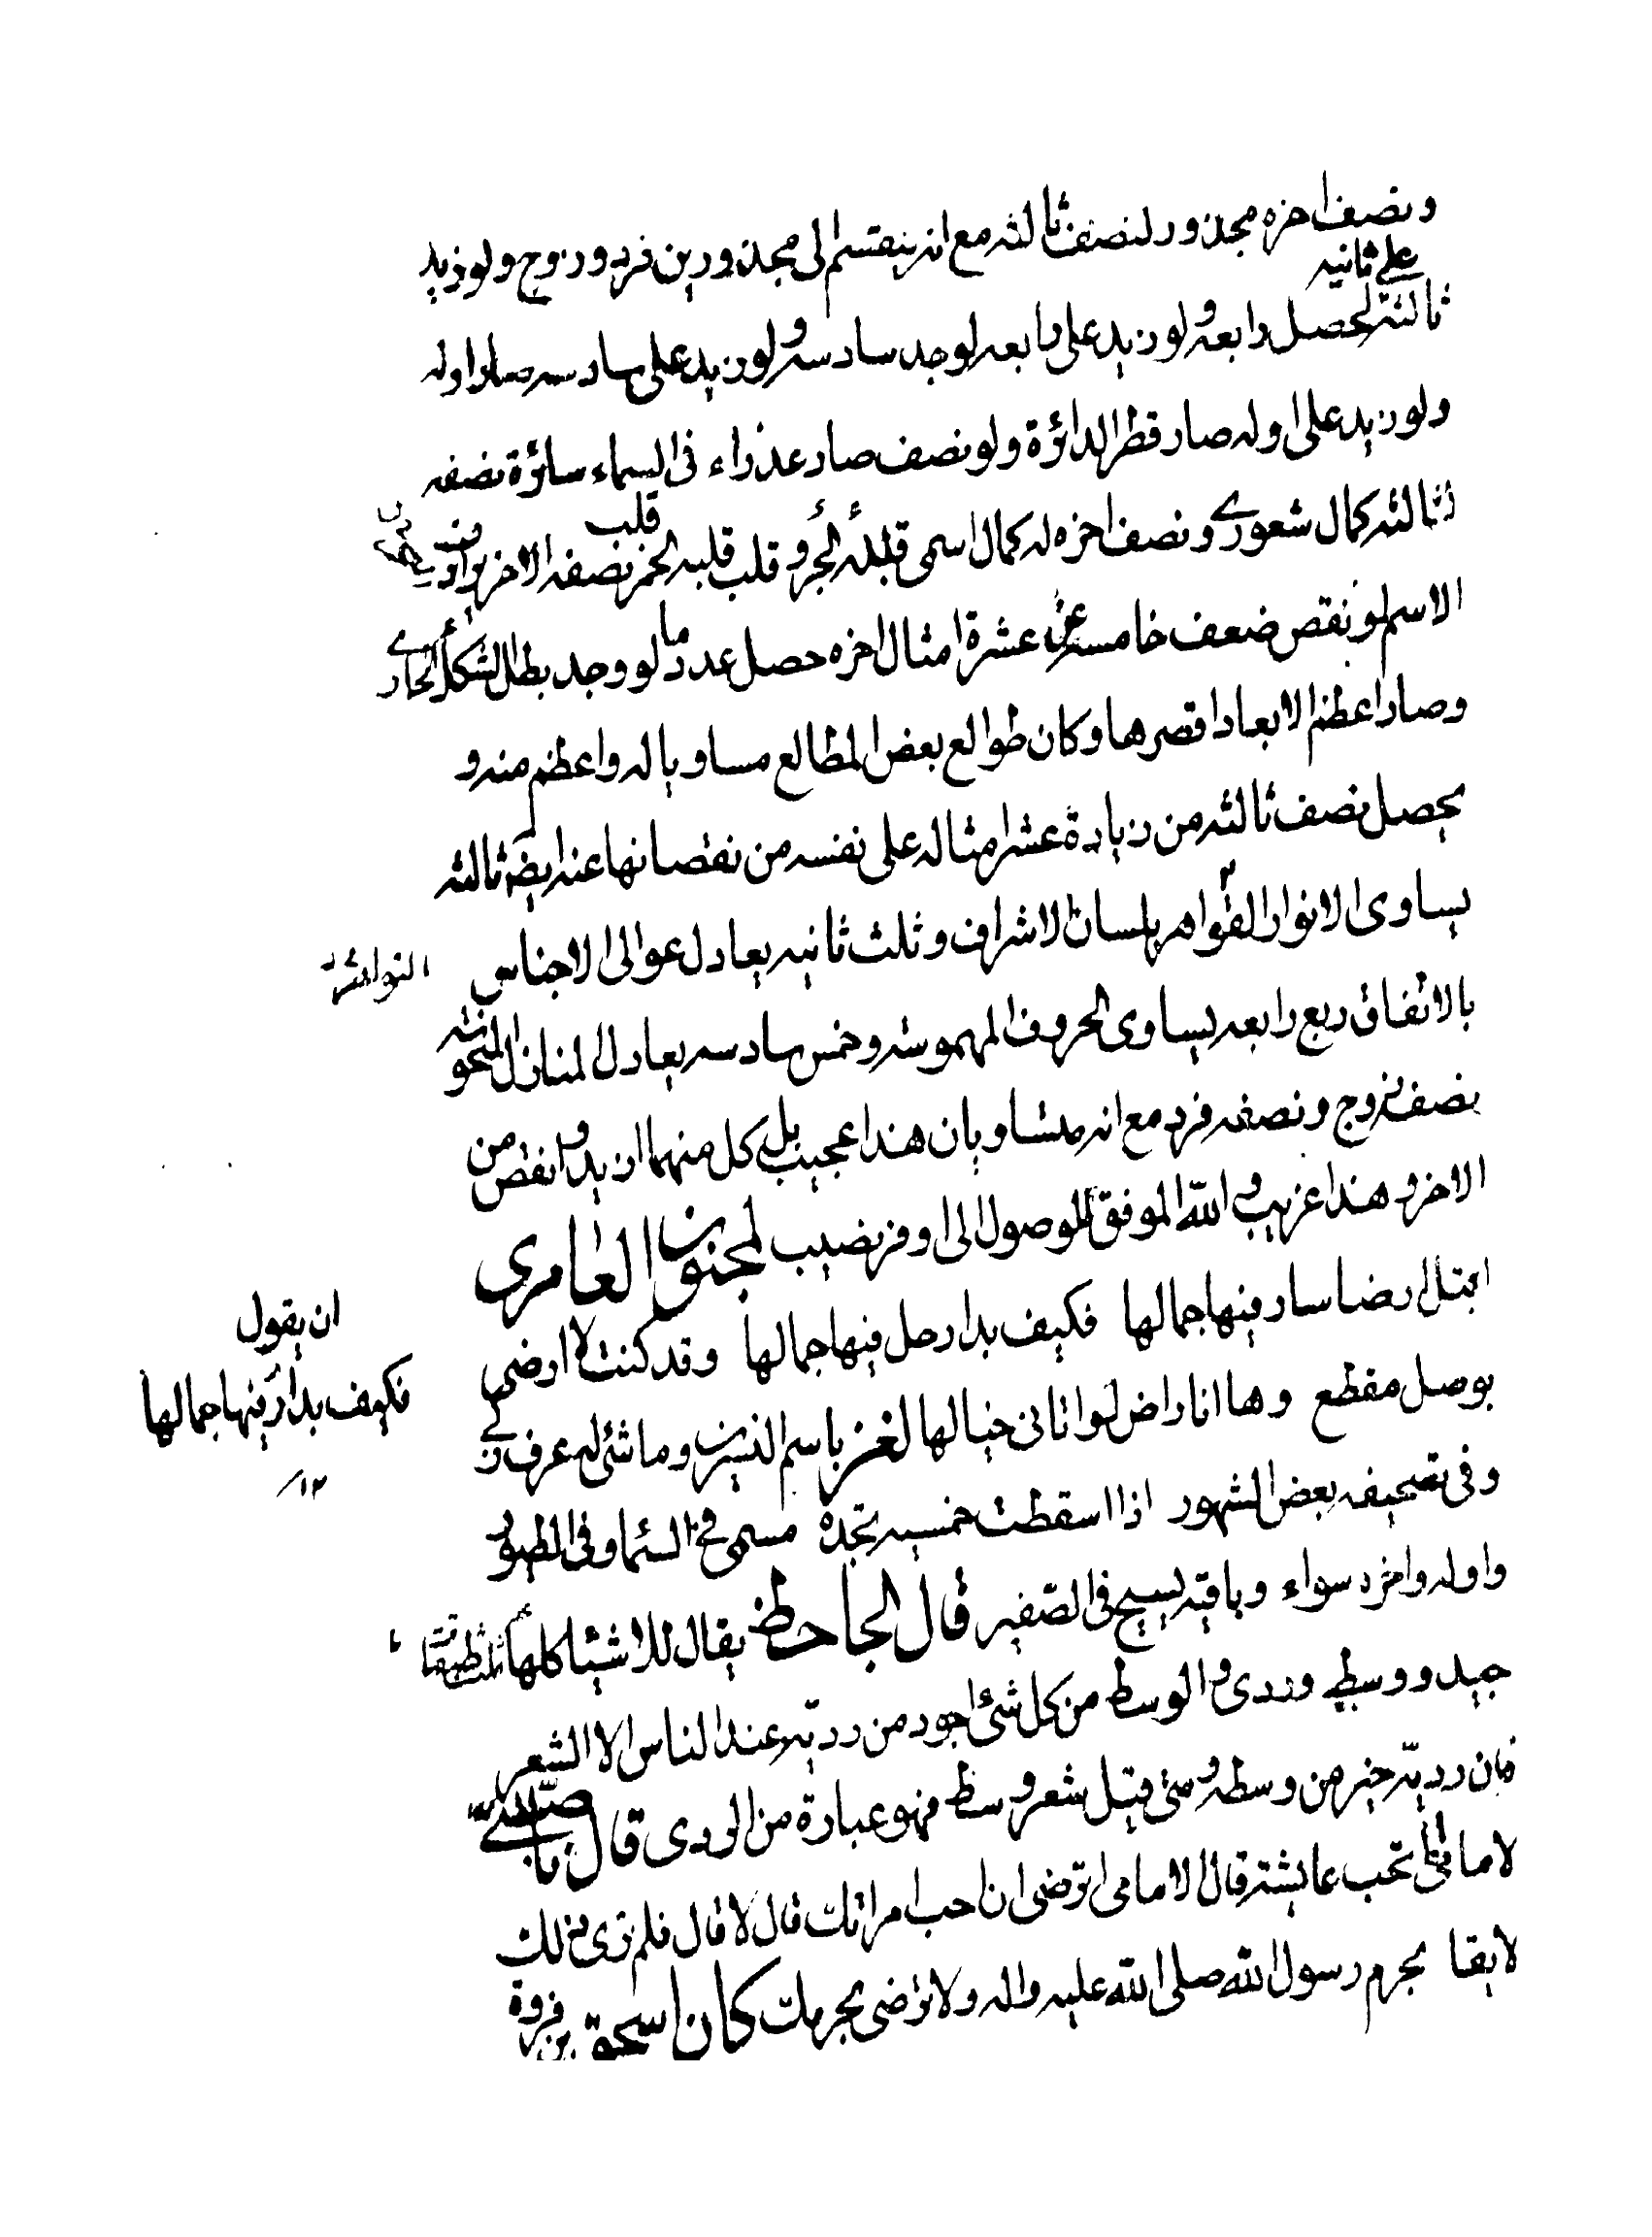 ونصف اخره مجذور لنصف ثالثه مع انه ينقسم الى مجذورين فرد وزوج ولو زيد
على ثانيه
ثالثه لحصل رابعه ولو زيد على رابعه لوجد سادسه ولو زيد على سادسه صار اوله
ولو زيد على اوله صار قطر الدائرة ولو نصف صار عذراء فى السماء سائرة نصفه
ثالثه كمال شعورى ونصف اخره له كمال اسمى قبله الجر وقلب قلبه الخمر نصفه الاخر
قلب
الاسم لو نقص ضعف خامسه عن عشرة امثال اخره حصل عدد ما لو وجد بطل الشكل الحارى
وصار اعظم الابعاد اقصرها وكان طوالع بعض المطالع مساويا له واعظم منه و
يحصل نصف ثالثه من زيادة عشر امثاله على نفسه من نقصانها عنه ايضا ثالثه
يساوى الانوار القواهر بلسان الاشراف وثلث ثانيه يعادل عوالى الاجناس
بالاتفاق ربع رابعه يساوى الحروف المهموسه وخمس سادسه يعادل المنازل المنحوسه
نصفه زوج ونصفه فرد مع انه متساويان هذا عجيب بل كل منهما ازيد وانقص من
الاخر وهذا غريب والله الموفق للوصول الى اوفر نصيب لمجنون العامرى
اقبل ارضا سار فيها جمالها فكيف بدار حل فيها جمالها وقد كنت لا ارضى
بوصل مقطع وها انا راض لو اتانى خيالها لغز باسم النسرين وما شئ له عرف ذكى
وفى تصحيفه بعض الشهور اذا اسقطت خمسيه تجده مسمى فى السما وفى الطيور
واوله واخره سواء وباقيه يسيح فى الصفير قال الجاحظ يقال للاشيا كلها ثلث طبقات
جيد ووسط وردى والوسط من كل شئ اجود من رديه عند الناس الا الشعر
فان رديه خير من وسطه ومتى قيل شعر وسط فهو عبارة من الردى قال
لامامى تحب عايشه قال لا امامى اترضى ان احب امراتك قال لا قال فلم ترى ذلك
لايقا بحرم رسول الله صلى الله عليه واله ولا ترضى بحرمك كان اسحق بن فروة
ان يقول
فكيف بدار فيها جمالها
١٢